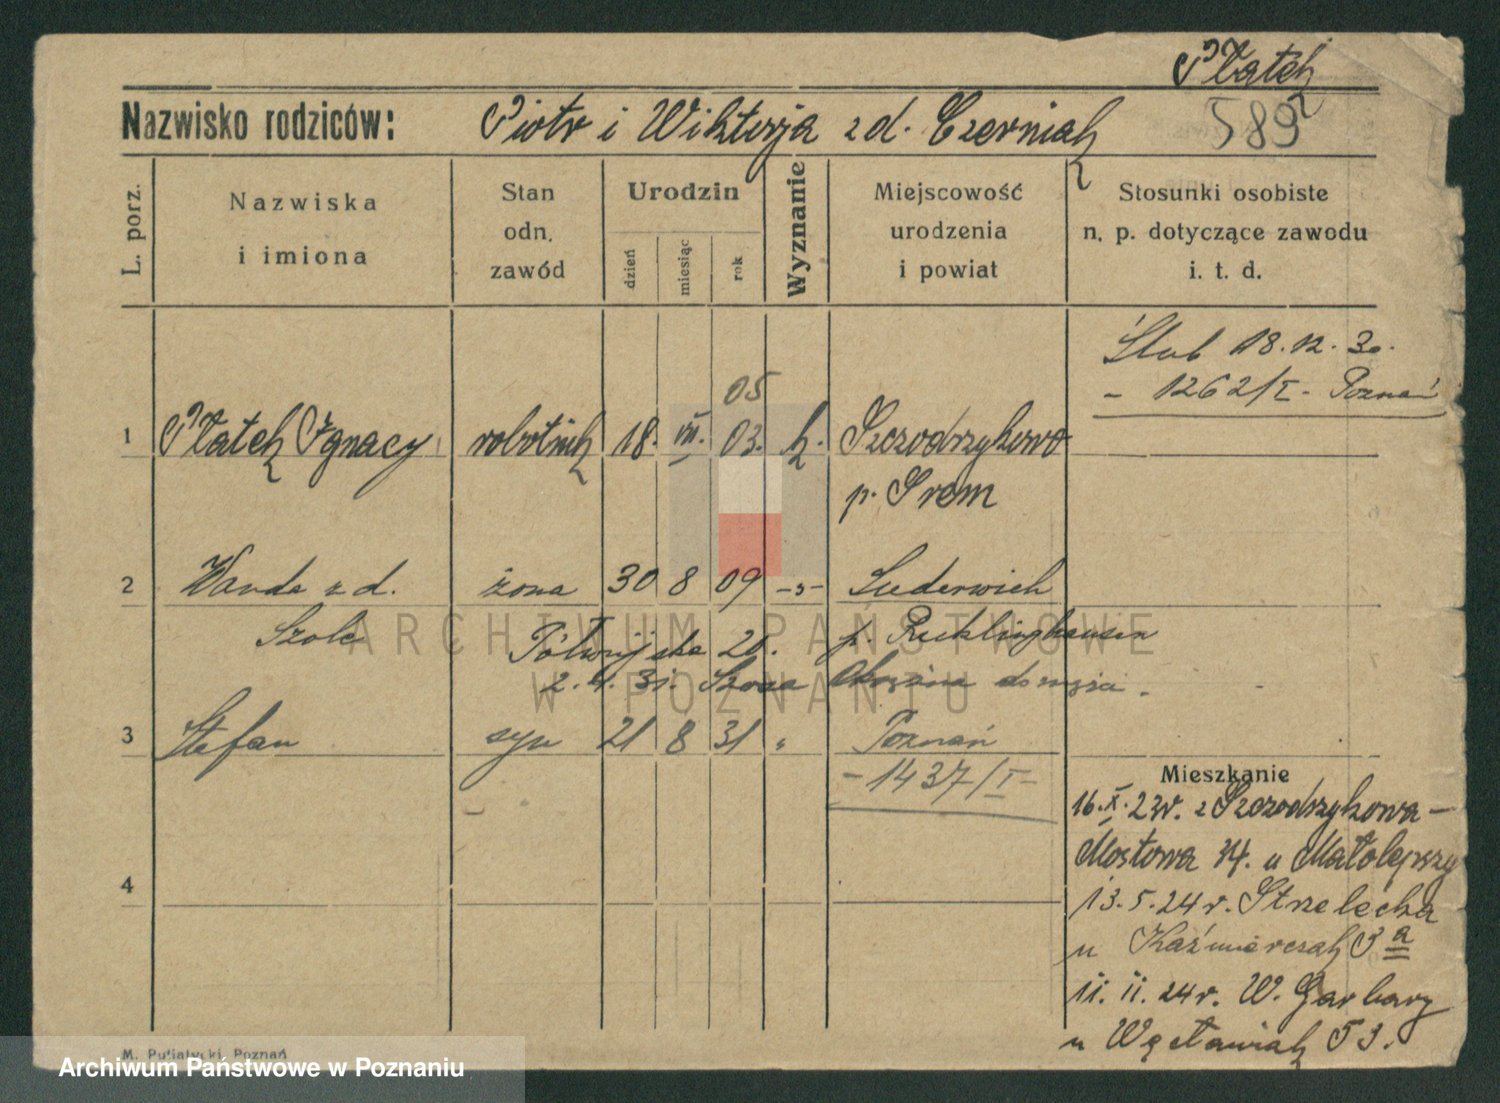 Płatek
589
Nazwisko rodziców: Piotr i Wiktorja z d. Czerniak
L. porz.
Nazwiska
i imiona
Stan
odn.
zawód
Urodzin
dzień
miesiąc
rok
Wyznanie
Miejscowość
urodzenia
i powiat
Stosunki osobiste
n. p. dotyczące zawodu
i. t. d.
Ślub 18.12.30.
- 1262/I - Poznań
05
1 Płatek Ignacy robotnik 18. VII. 03. k. Szczodrzykowo
p. Śrem
2 Wanda z d. żona 30 8 09 -„- Suderwich
Szolc p. Recklinghausen
Półwiejska 20.
2.4.31.
3 Stefan syn 21 8 31 „ Poznań
- 1437/I -
4
Mieszkanie
16.X.23r. z Szczodrzykowa -
Mostowa 34. u Małolepszy
13.5.24r. Strzelecka
u Kaźmierczak 3 a
11. 11. 24r. W. Garbary
u Węcławiak 53.
M. Putiatycki, Poznań
ARCHIWUM PAŃSTWOWE
W POZNANIU
Archiwum Państwowe w Poznaniu